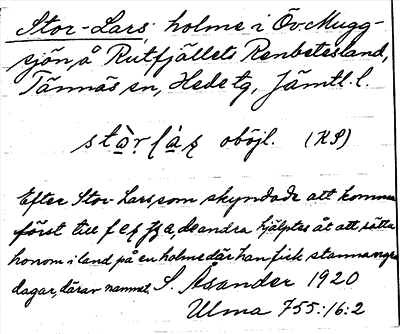 Stor-Lars, holme i Öv. Mugg-
sjön, å Rutfjällets Renbetesland,
Tännäs sn, Hede tg, Jämtl. l.
oböjl. (KP)
Efter Stor-Lars, som skyndade att komma
först till de andra hjälptes åt att sätta
honom i land på en holme där han fick stanna några
dagar, därav namnet. S. Åsander 1920
Ulma 755:16:2